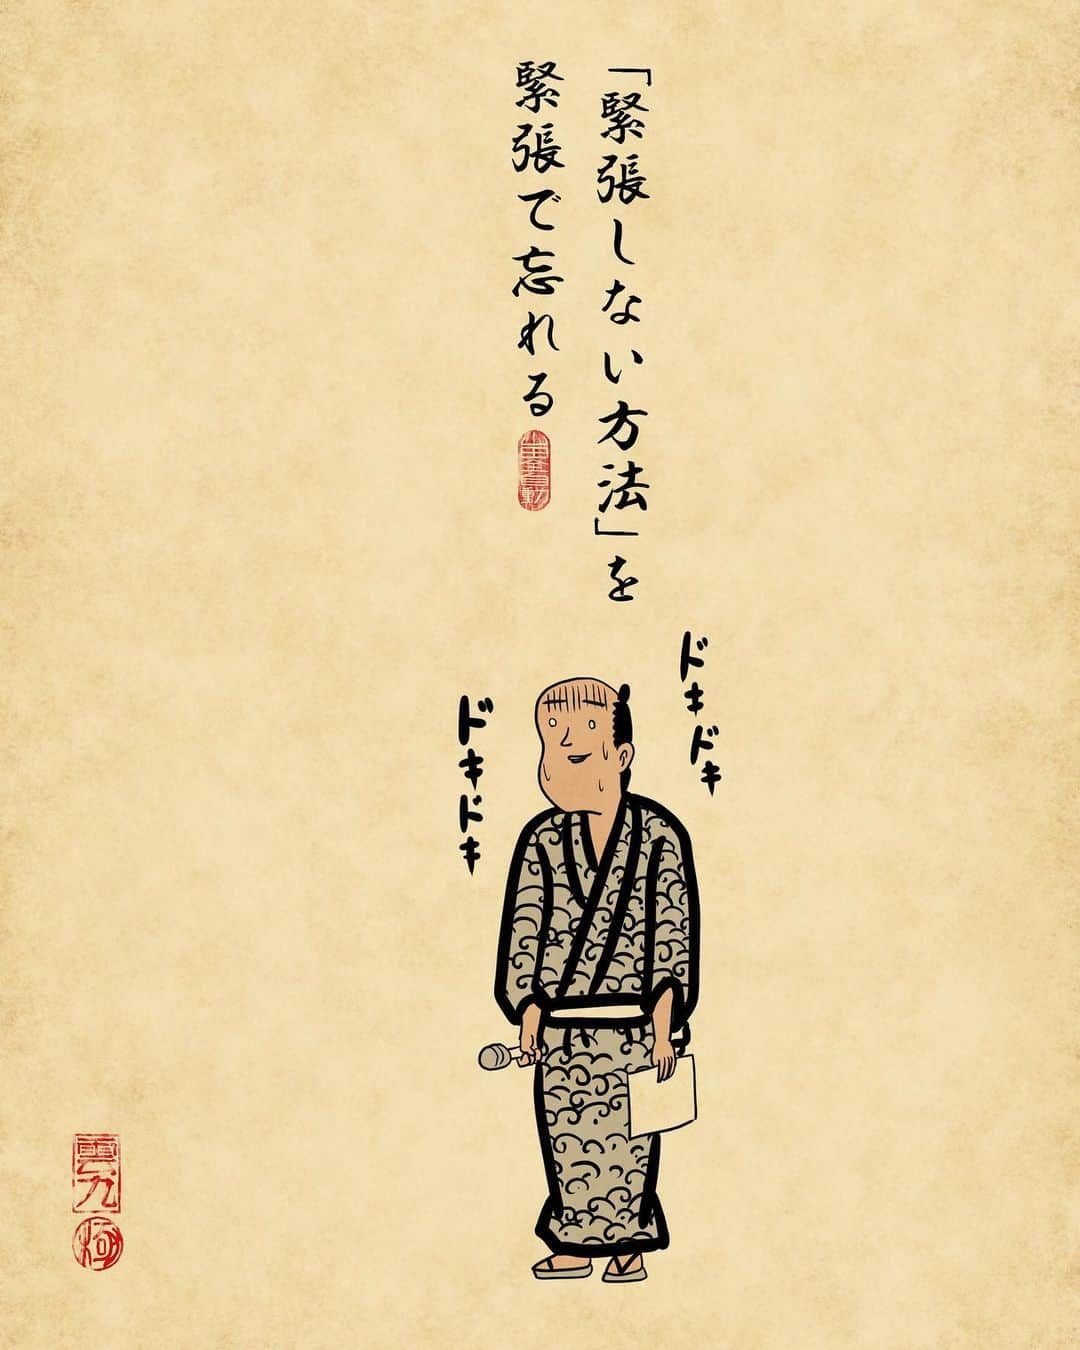 「緊張しない方法」を
緊張で忘れる
ドキドキ
ドキドキ